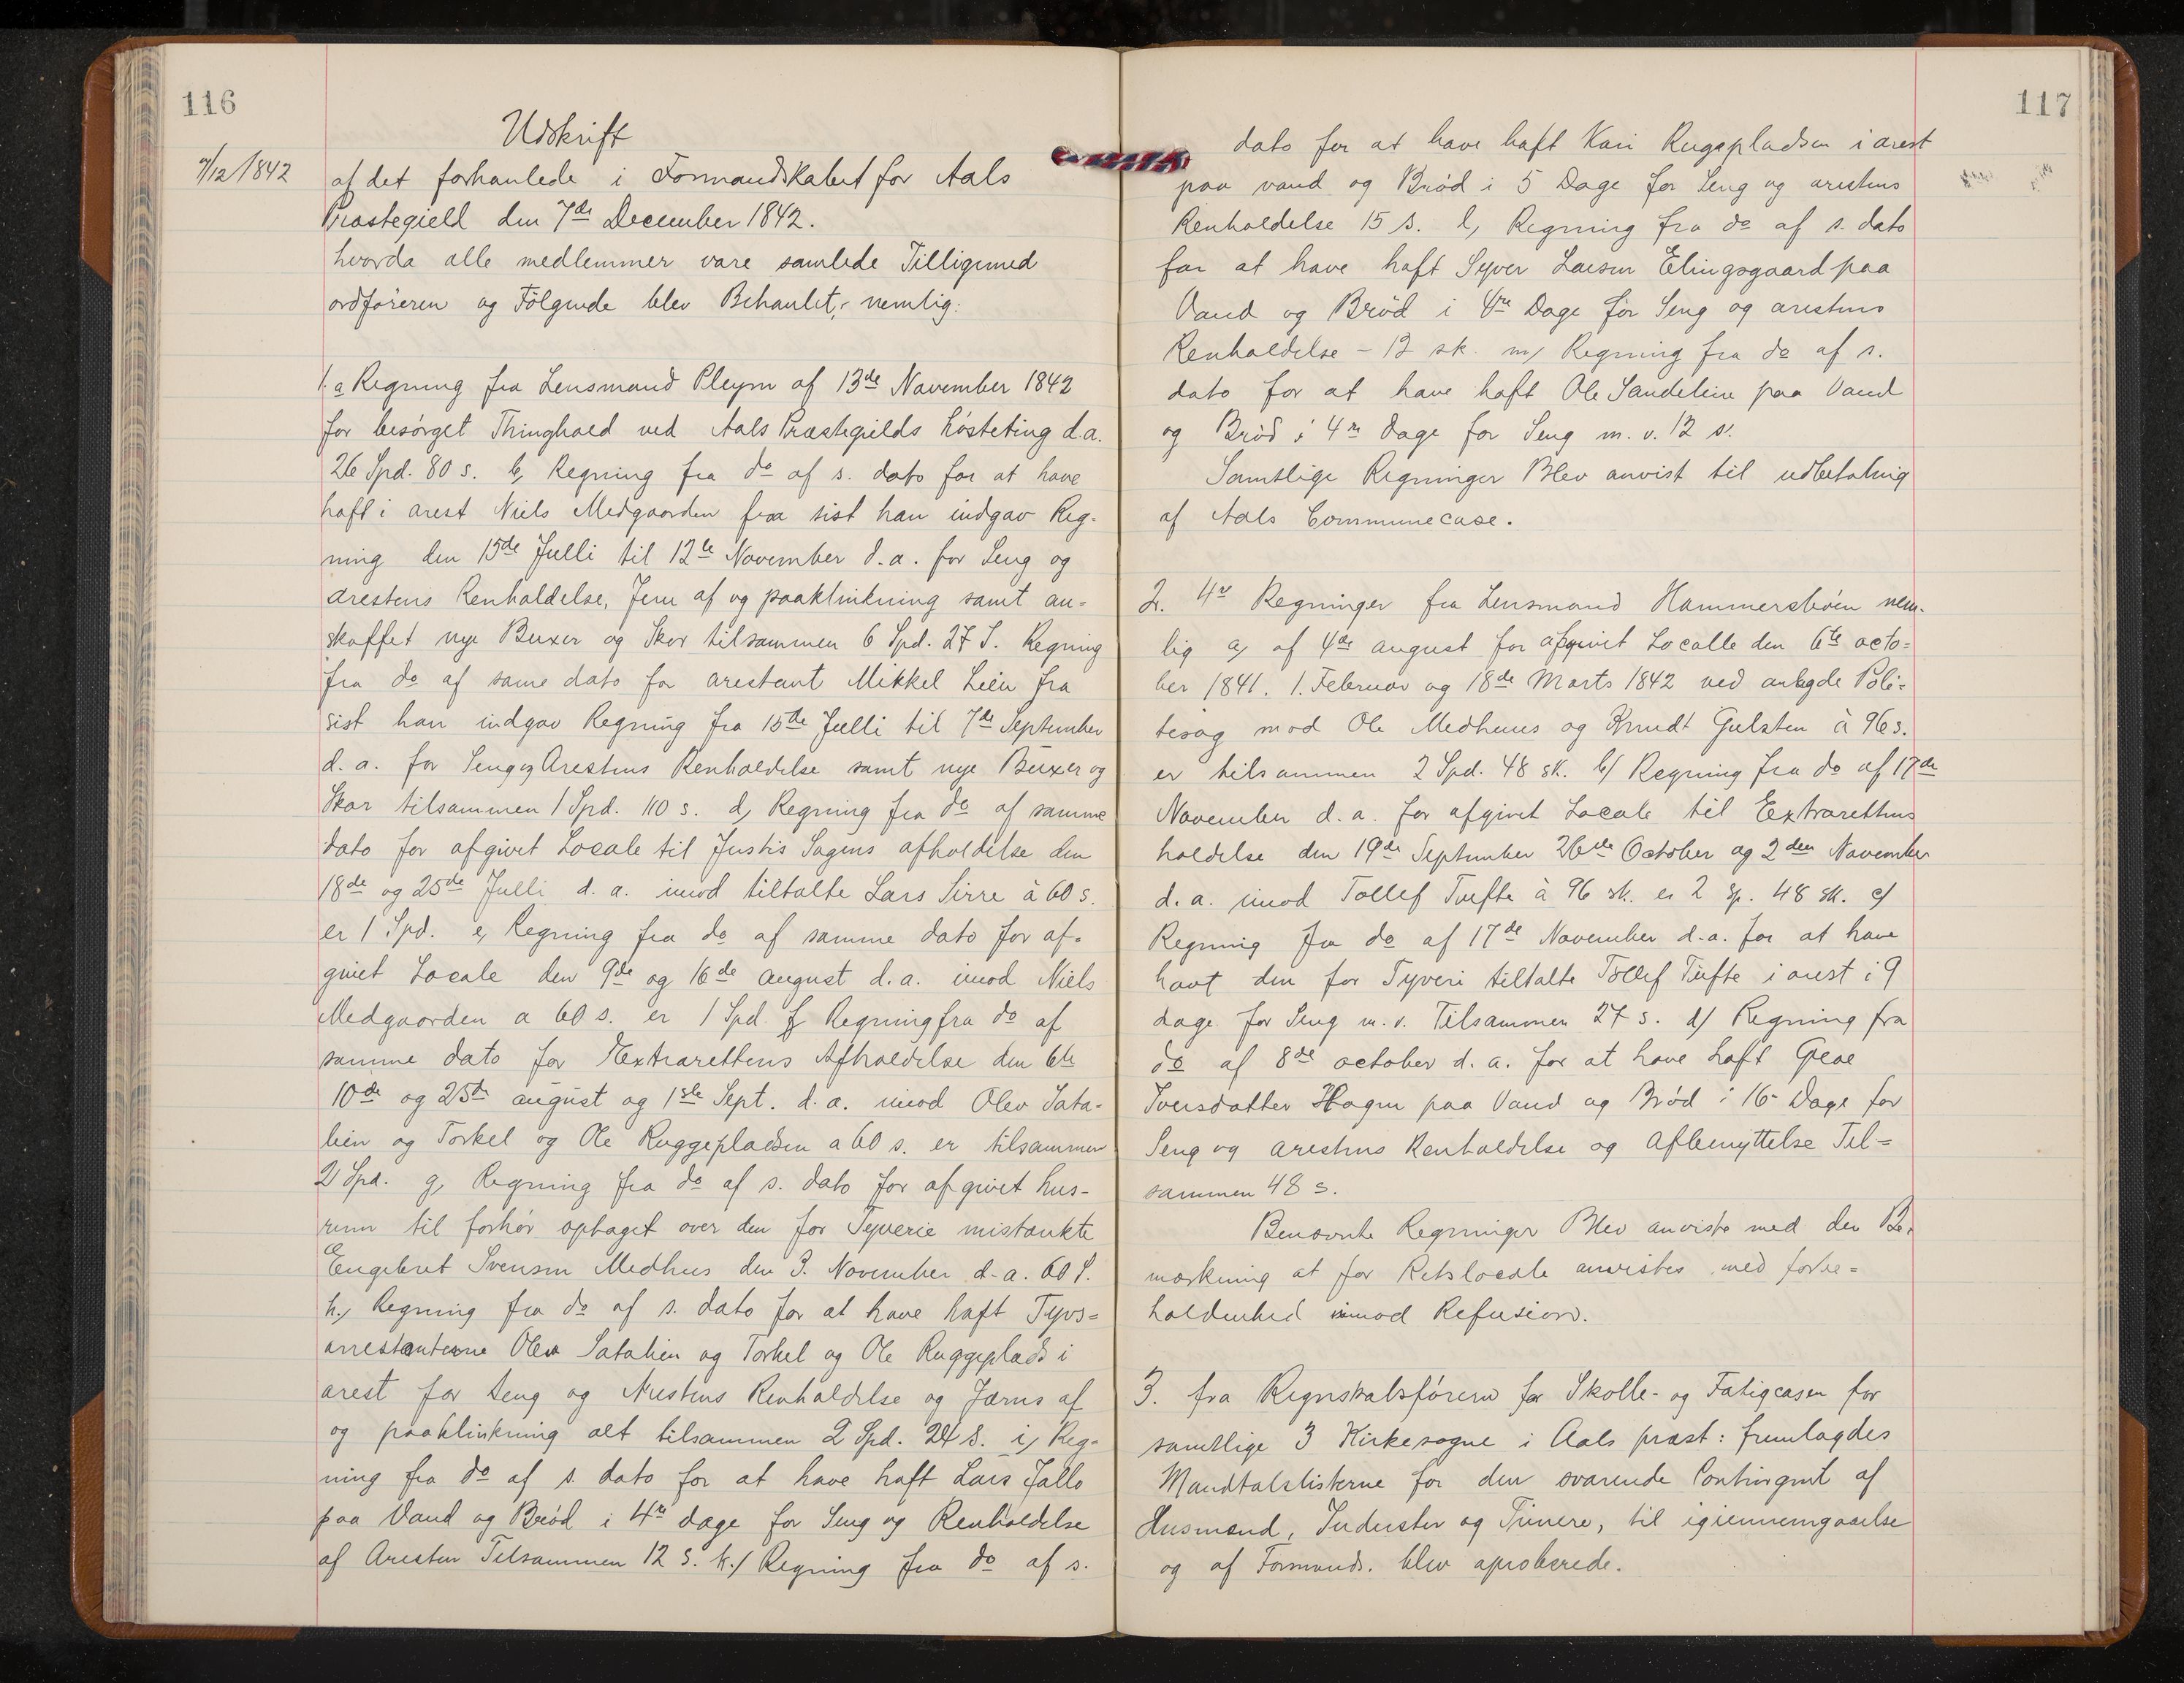 116
Udskrift
7/12/1842
af det forhanlede i Formandskabet for Aals
Præstegield den 7de December 1842.
hvorda alle medlemmer vare samlede Tilligemed
ordføreren og Følgende blev Behanlet, nemlig:
1. a Regning fra Lensmand Pleym af 13de November 1842
for besørget Thinghold ved Aals Præstegields høsteting d.a.
26 Spd. 80 s. b, Regning fra do af s. dato for at have
haft i arest Niels Medgaarden fraa sist han indgav Reg-
ning den 15de Julli til 12te November d.a. for Seng og
arestens Renholdelse, Jern af og paaklinkning samt an-
skaffet nye Buxer og Skor tilsammen 6 Spd. 27 S. Regning
fra do af same dato for arestant Mikkel Leiu fra
sist han indgav Regning fra 15de Julli til 7de September
d. a. for Seng og Arestens Renholdelse samt nye Buxer og
Skor tilsammen 1 Spd. 110 s. d, Regning fra do af samme
dato for afgivet Locale til Justis Sagens afholdelse den
18de og 25de Julli d. a. imod tiltalte Lars Sirre à 60 s.
er 1 Spd. e, Regning fra do af samme dato for af-
givet Locale den 9de og 16de august d.a. imod Niels
Medgaarden a 60 s. er 1 Spd. f, Regning fra do af
samme dato for Extrarettens Afholdelse den 6te
10de og 25de august og 1ste Sept. d. a. imod Olev Sata-
lien og Torkel og Ole Ruggepladsen a 60 s. er tilsammen
2 Spd. g, Regning fra do af s. dato for afgivet hus-
rum til forhør optaget over den for Tyverie mistænkte
Engebret Svensen Medhus den 3. November d.a. 60 S.
h., Regning fra do af s. dato for at have haft Tyvs-
arrestanterne Olev Satalien og Torkel og Ole Ruggeplads i
arest for Seng og Arestens Renholdelse og Jærns af
og paaklinkning alt tilsammen 2 Spd. 24 s. i, Reg-
ning fra do af s. dato for at have haft Lars Jallo
paa Vand og Brød i 4re dage for Seng og Renholdelse
af Aresten Tilsammen 12 s. k./ Regning fra do af s.
117
dato for at have haft Kari Rugepladsen i arest
paa vand og Brød i 5 Dage for Seng og arestens
Renholdelse 15 s. l, Regning fra do af s. dato
for at have haft Syver Larsen Elingsgaard paa
Vand og Brød i 4re Dage for Seng og arestens
Renholdelse - 12 sk. m, Regning fra do af s.
dato for at have haft Ole Sandelien paa Vand
og Brød i 4re dage for Seng m. v. 12 s.
Samtlige Regninger Blev anvist til udbetaling
af Aals Communecase.
2. 4re Regninger fra Lensmand Hammersbøen nem-
lig a, af 4de august for afgivet Localle den 6te octo-
ber 1841. 1. Februar og 18de Marts 1842 ved anlagde Poli-
tisag mod Ole Medhuus og Knudt Gulsten à 96 s.
er tilsammen 2 Spd. 48 sk. b/ Regning fra do af 17de
November d. a. for afgivet Locale til Extrarettens
holdelse den 19de September 26de October og 2den November
d. a. imod Tollef Tufte à 96 sk. er 2 sp. 48 sk. c/
Regning fra do af 17de November d.a. for at have
havt den for Tyveri tiltalte Tollef Tufte i arest i 9
dage for Seng m. v. Tilsammen 27 s. d/ Regning fra
do af 8de october d. a. for at have haft Groe
Iversdatter Hagen paa Vand og Brød i 16- Dage for
Seng og arestens Renholdelse og Afbenyttelse Til-
sammen 48 s.
Benævnte Regninger Blev anviste med den Be-
mærkning at for Retslocale anvistes med forbe-
holdenhed imod Refusion.
3. fra Regnskabsføreren for Skolle- og Fatigcasen for
samtlige 3 Kirkesogne i Aals præst: fremlagdes
Mandtalslisterne for den svarende Contingent af
Husmænd, Inderster og Tienere, til igiennemgaaelse
og af Formands. blev aproberede.